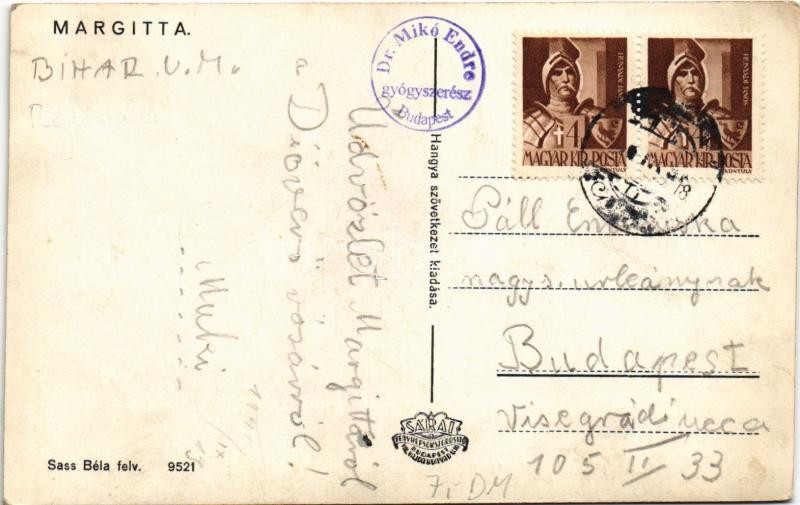 MARGITTA.
BIHAR V.M.
Dr. Mikó Endre
gyógyszerész
Budapest
HUNYADI JÁNOS
4
MAGYAR KIR. POSTA
KONTULY
HUNYADI JÁNOS
4
MAGYAR KIR. POSTA
KONTULY
Üdvözlet Margittáról
a
vásárról!
Muki
Hangya szövetkezet kiadása.
SÁRAI
FÉNYKÉPSOKSZOROSÍTÓ
BUDAPEST
Páll
nagys. urleánynak
Budapest
Visegrádi ucca
105 II 33
7,- DM
Sass Béla felv. 9521